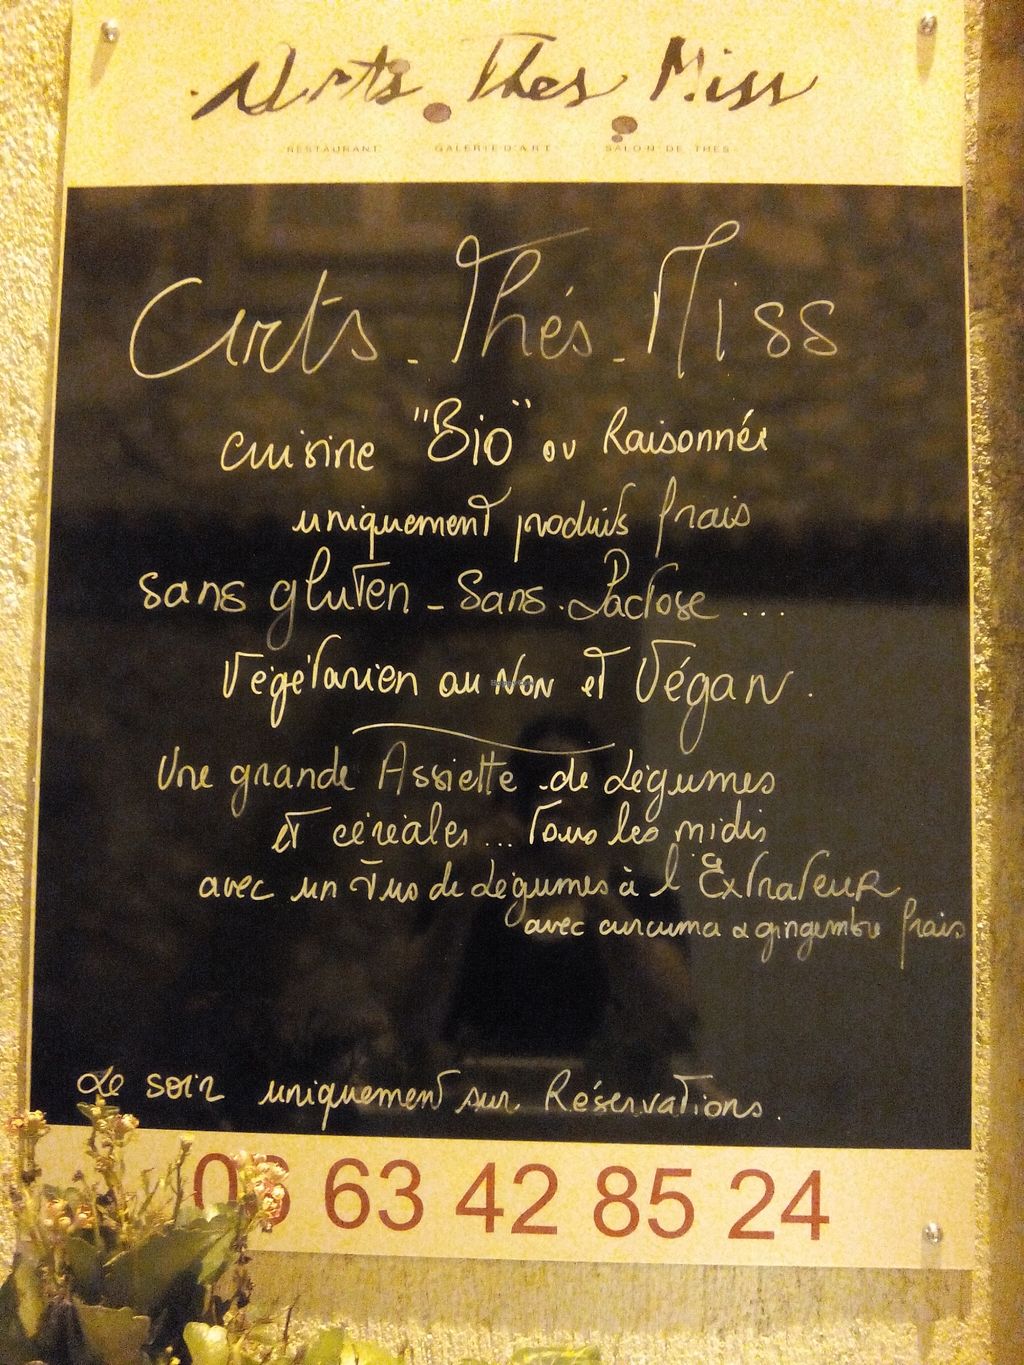 Arts Thés Miss
RESTAURANT GALERIE D'ART SALON DE THES
Arts - Thés - Miss
cuisine "Bio" ou Raisonnée
uniquement produits frais
sans gluten - Sans Lactose ...
Végétarien ou Non et Végan.
Une grande Assiette de Légumes
et céréales... Tous les midis
avec un Jus de Légumes à l'Extrateur
avec curcuma & gingembre frais
Le soir uniquement sur Réservations.
06 63 42 85 24